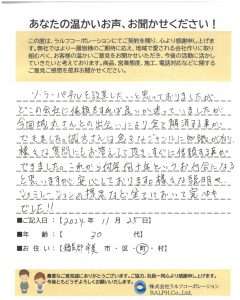 あなたの温かいお声、お聞かせください！
この度は、ラルフコーポレーションにてご契約を賜り、心より感謝申し上げます。
弊社ではより一層皆様のご期待に応え、地域で愛される会社作りに取り
組むべく、お客様の温かいご意見をお聞かせいただき、今後の活動に活かし
ていきたいと考えております。商品、営業態度、施工、電話対応などに関する
ご意見ご感想を是非お聞かせください。
ソーラーパネルを設置したいと思っておりましたが
どこの会社に依頼をすれば良いか迷っていましたが
今回
できました。
様々な質問にもお答え頂き すぐに信頼する事が
できました。これから何年何十年というお付合になる
と思いますが 安心しております。様々な説明や
シミュレーションの提案など全てにおいて
でした!!
【記入日】：【2024年 11月 25日】
【年齢】：【 30 代】
【お住い】：【 市・区・町・村】
貴重なご意見誠にありがとうございます。ご協力、社員一同心より感謝申し上げます。
今後ともどうぞよろしくお願いいたします。
株式会社ラルフコーポレーション
RALPH.Co.,Ltd.